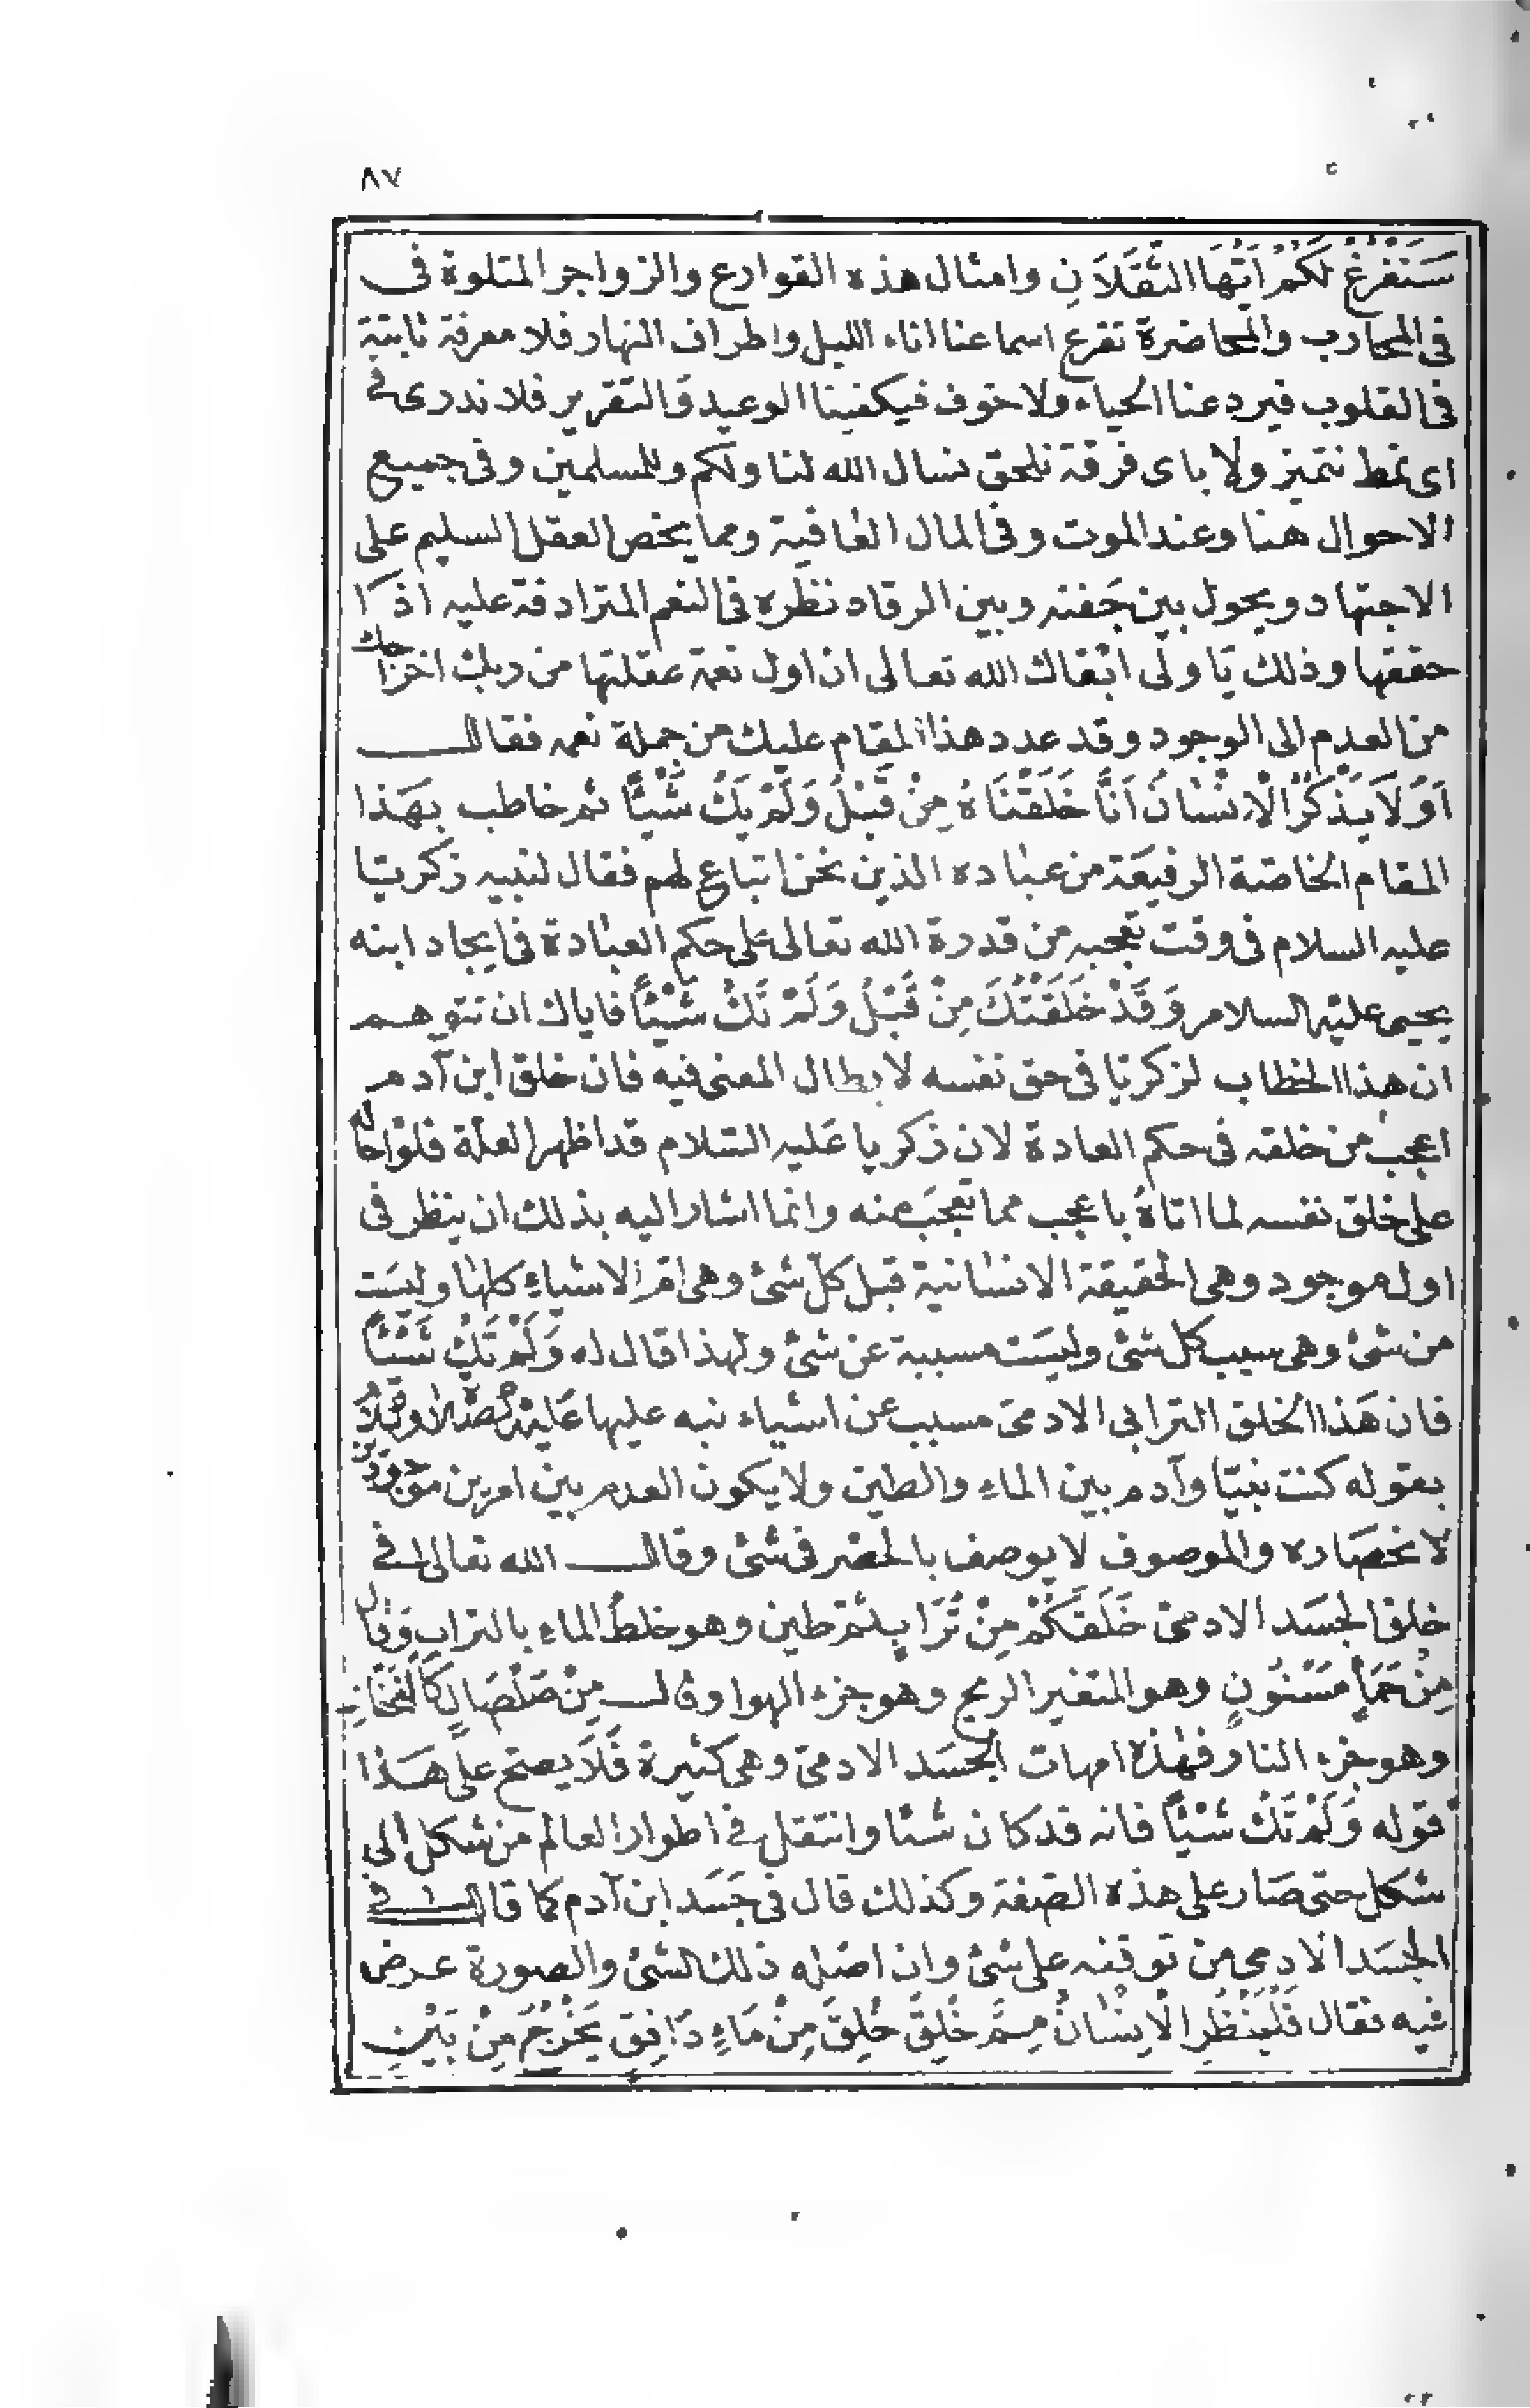 ٨٧
سَنَفْرُغُ لَكُمْ اَيُّهَا الثَّقَلَانِ وامثال هذه القوارع والزواجر المتلوة فى
فى المحارب والمحاضرة تقرع اسماعنا اناء الليل واطراف النهار فلا معرفة ثابتة
فى القلوب فيردعنا الحياء ولا خوف فيكفينا الوعيد والتقرير فلا ندرى فى
اى نمط نتميز ولا باى فرقة نلحق نسال الله لنا ولكم وللمسلمين وفى جميع
الاحوال هنا وعند الموت وفى المال العافية ومما يخص العقل السليم على
الاجتهاد ويحول بين جَفنه وبين الرقاد نظره فى النعم المترادفة عليه اذا
حققها وذلك يا ولى ابقاك الله تعالى ان اول نعمة عقلتها من ربك اخراجك
من العدم الى الوجود وقد عدد هذا المقام عليك من جملة نعمه فقال
اَوَلَا يَذْكُرُ الْاِنْسَانُ اَنَّا خَلَقْنَاهُ مِنْ قَبْلُ وَلَمْ يَكُ شَيْئًا ثم خاطب بهَذا
المقام الخاصّة الرفيعَة من عباده الذين نحن اتباع لهم فقال لنبيه زكريّا
عليه السلام فى وقت تعجبه من قدرة الله تعالى على حكم العبادة فى ايجاد ابنه
يحيى عليه السلام وَقَدْ خَلَقْتُكَ مِنْ قَبْلُ وَلَمْ تَكُ شَيْئًا فاياك ان تتوهم
ان هذا الخطاب لزكريّا فى حق نفسه لابطال المعنى فيه فان خلق ابن آدم
اعجب من خلقه فى حكم العادة لان زكريا عَليه السّلام قد اظهر العلّة فلو احاله
على خلق نفسه لما اتاهُ باعجب مما تعجبَ منه وانما اشار اليه بذلك ان ينظر فى
اول موجود وهى الحقيقة الانسانية قبل كل شئ وهى ام الاشياءِ كلها وليسَت
من شئ وهى سبب كل شئ وليسَت مسببة عن شئ ولهذا قال له وَلَمْ تَكُ شَيْئًا
فان هَذا الخلق الترابى الادمىّ مسبب عن اشياء نبه عليها عَليْه
بقوله كنت نبيّا وآدم بين الماءِ والطين ولا يكون العدم بين امرين موجودين
لانحصاره والموصوف لا يوصف بالحصْر فى شئ وقال الله تعالى فى
خلق الجسَد الادمىّ خَلَقَكُمْ مِنْ تُرَابٍ ثم طين وهو خلطُ الماءِ بالتراب وَقال
مِنْ حَمَأٍ مَسْنُونٍ وهو المتغير الريح وهو جزء الهوا وقال مِنْ صَلْصَالٍ كَالْفَخَّارِ
وهو جزء النار فهٰذه امهات الجسَد الادمىّ وهى كثيرة فَلَا يصح على هَذا
قوله وَلَمْ تَكُ شَيْئًا فانه قد كان شيئا وانتقل فى اطوار العالم من شكل الى
شكل حتى صَار على هذه الصّفة وكذلك قال فى جَسَد ابن آدم كما قال فى
الجسَد الادمى من توقفه على شئ وان اصْله ذلك الشئ والصورة عرض
فيه فقال فَلْيَنْظُرِ الْاِنْسَانُ مِمَّ خُلِقَ خُلِقَ مِنْ مَاءٍ دَافِقٍ يَخْرُجُ مِنْ بَيْنِ